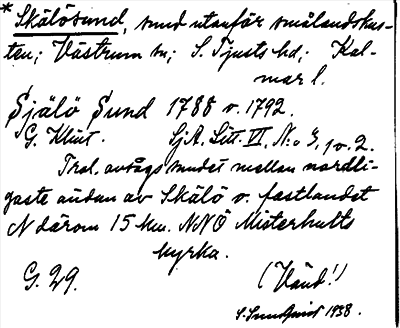 * Skälösund, sund utanför smålandskus-
ten; Västrum sn; S. Tjusts hd; Kal-
mar l.
Själö Sund 1788 o. 1792.
G. Klint. SjA. Litt. VI, N:o 3, 1 o. 2.
Trol. avsågs sundet mellan nordli-
gaste ändan av Skälö o. fastlandet
N därom 15 km. NNÖ Misterhults
kyrka.
G. 29. (Vänd!)
S. Sundquist 1938.